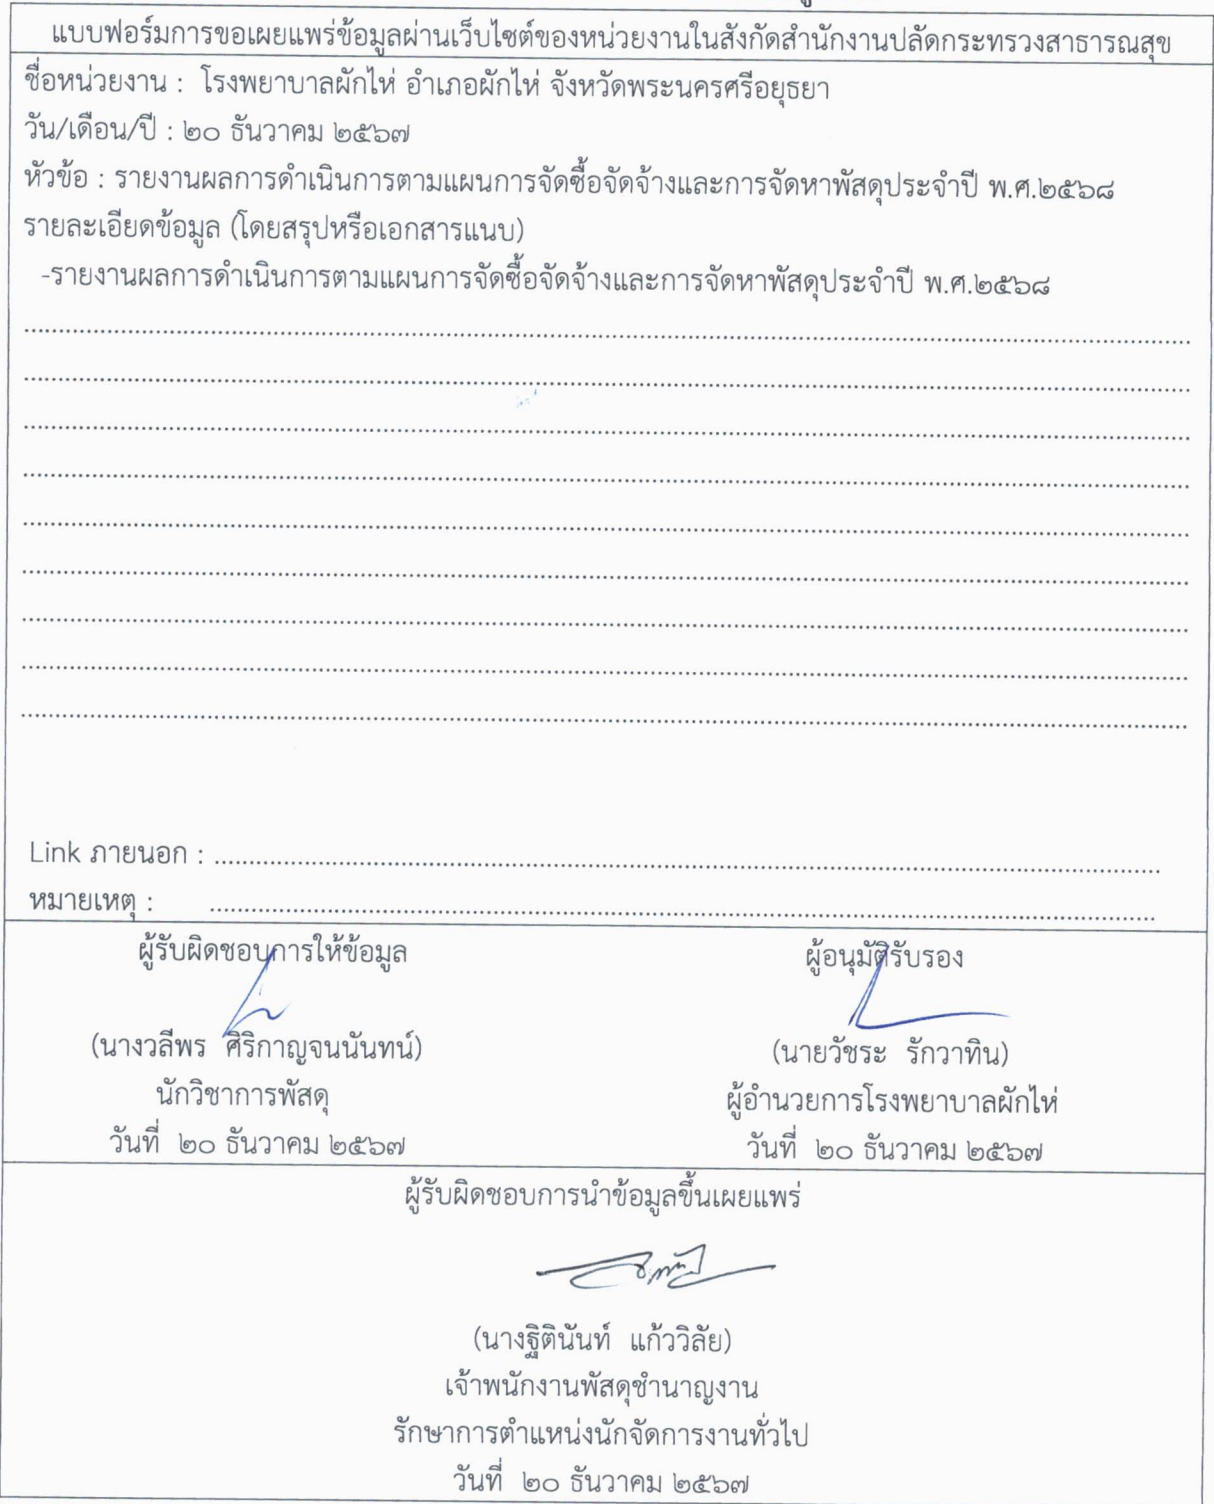 แบบฟอร์มการขอเผยแพร่ข้อมูลผ่านเว็บไซต์ของหน่วยงานในสังกัดสำนักงานปลัดกระทรวงสาธารณสุข
ชื่อหน่วยงาน : โรงพยาบาลผักไห่ อำเภอผักไห่ จังหวัดพระนครศรีอยุธยา
วัน/เดือน/ปี : ๒๐ ธันวาคม ๒๕๖๗
หัวข้อ : รายงานผลการดำเนินการตามแผนการจัดซื้อจัดจ้างและการจัดหาพัสดุประจำปี พ.ศ.๒๕๖๘
รายละเอียดข้อมูล (โดยสรุปหรือเอกสารแนบ)
-รายงานผลการดำเนินการตามแผนการจัดซื้อจัดจ้างและการจัดหาพัสดุประจำปี พ.ศ.๒๕๖๘
Link ภายนอก :
หมายเหตุ :
ผู้รับผิดชอบการให้ข้อมูล
(นางวลีพร ศิริกาญจนนันทน์)
นักวิชาการพัสดุ
วันที่ ๒๐ ธันวาคม ๒๕๖๗
ผู้อนุมัติรับรอง
(นายวัชระ รักวาทิน)
ผู้อำนวยการโรงพยาบาลผักไห่
วันที่ ๒๐ ธันวาคม ๒๕๖๗
ผู้รับผิดชอบการนำข้อมูลขึ้นเผยแพร่
(นางฐิตินันท์ แก้ววิลัย)
เจ้าพนักงานพัสดุชำนาญงาน
รักษาการตำแหน่งนักจัดการงานทั่วไป
วันที่ ๒๐ ธันวาคม ๒๕๖๗